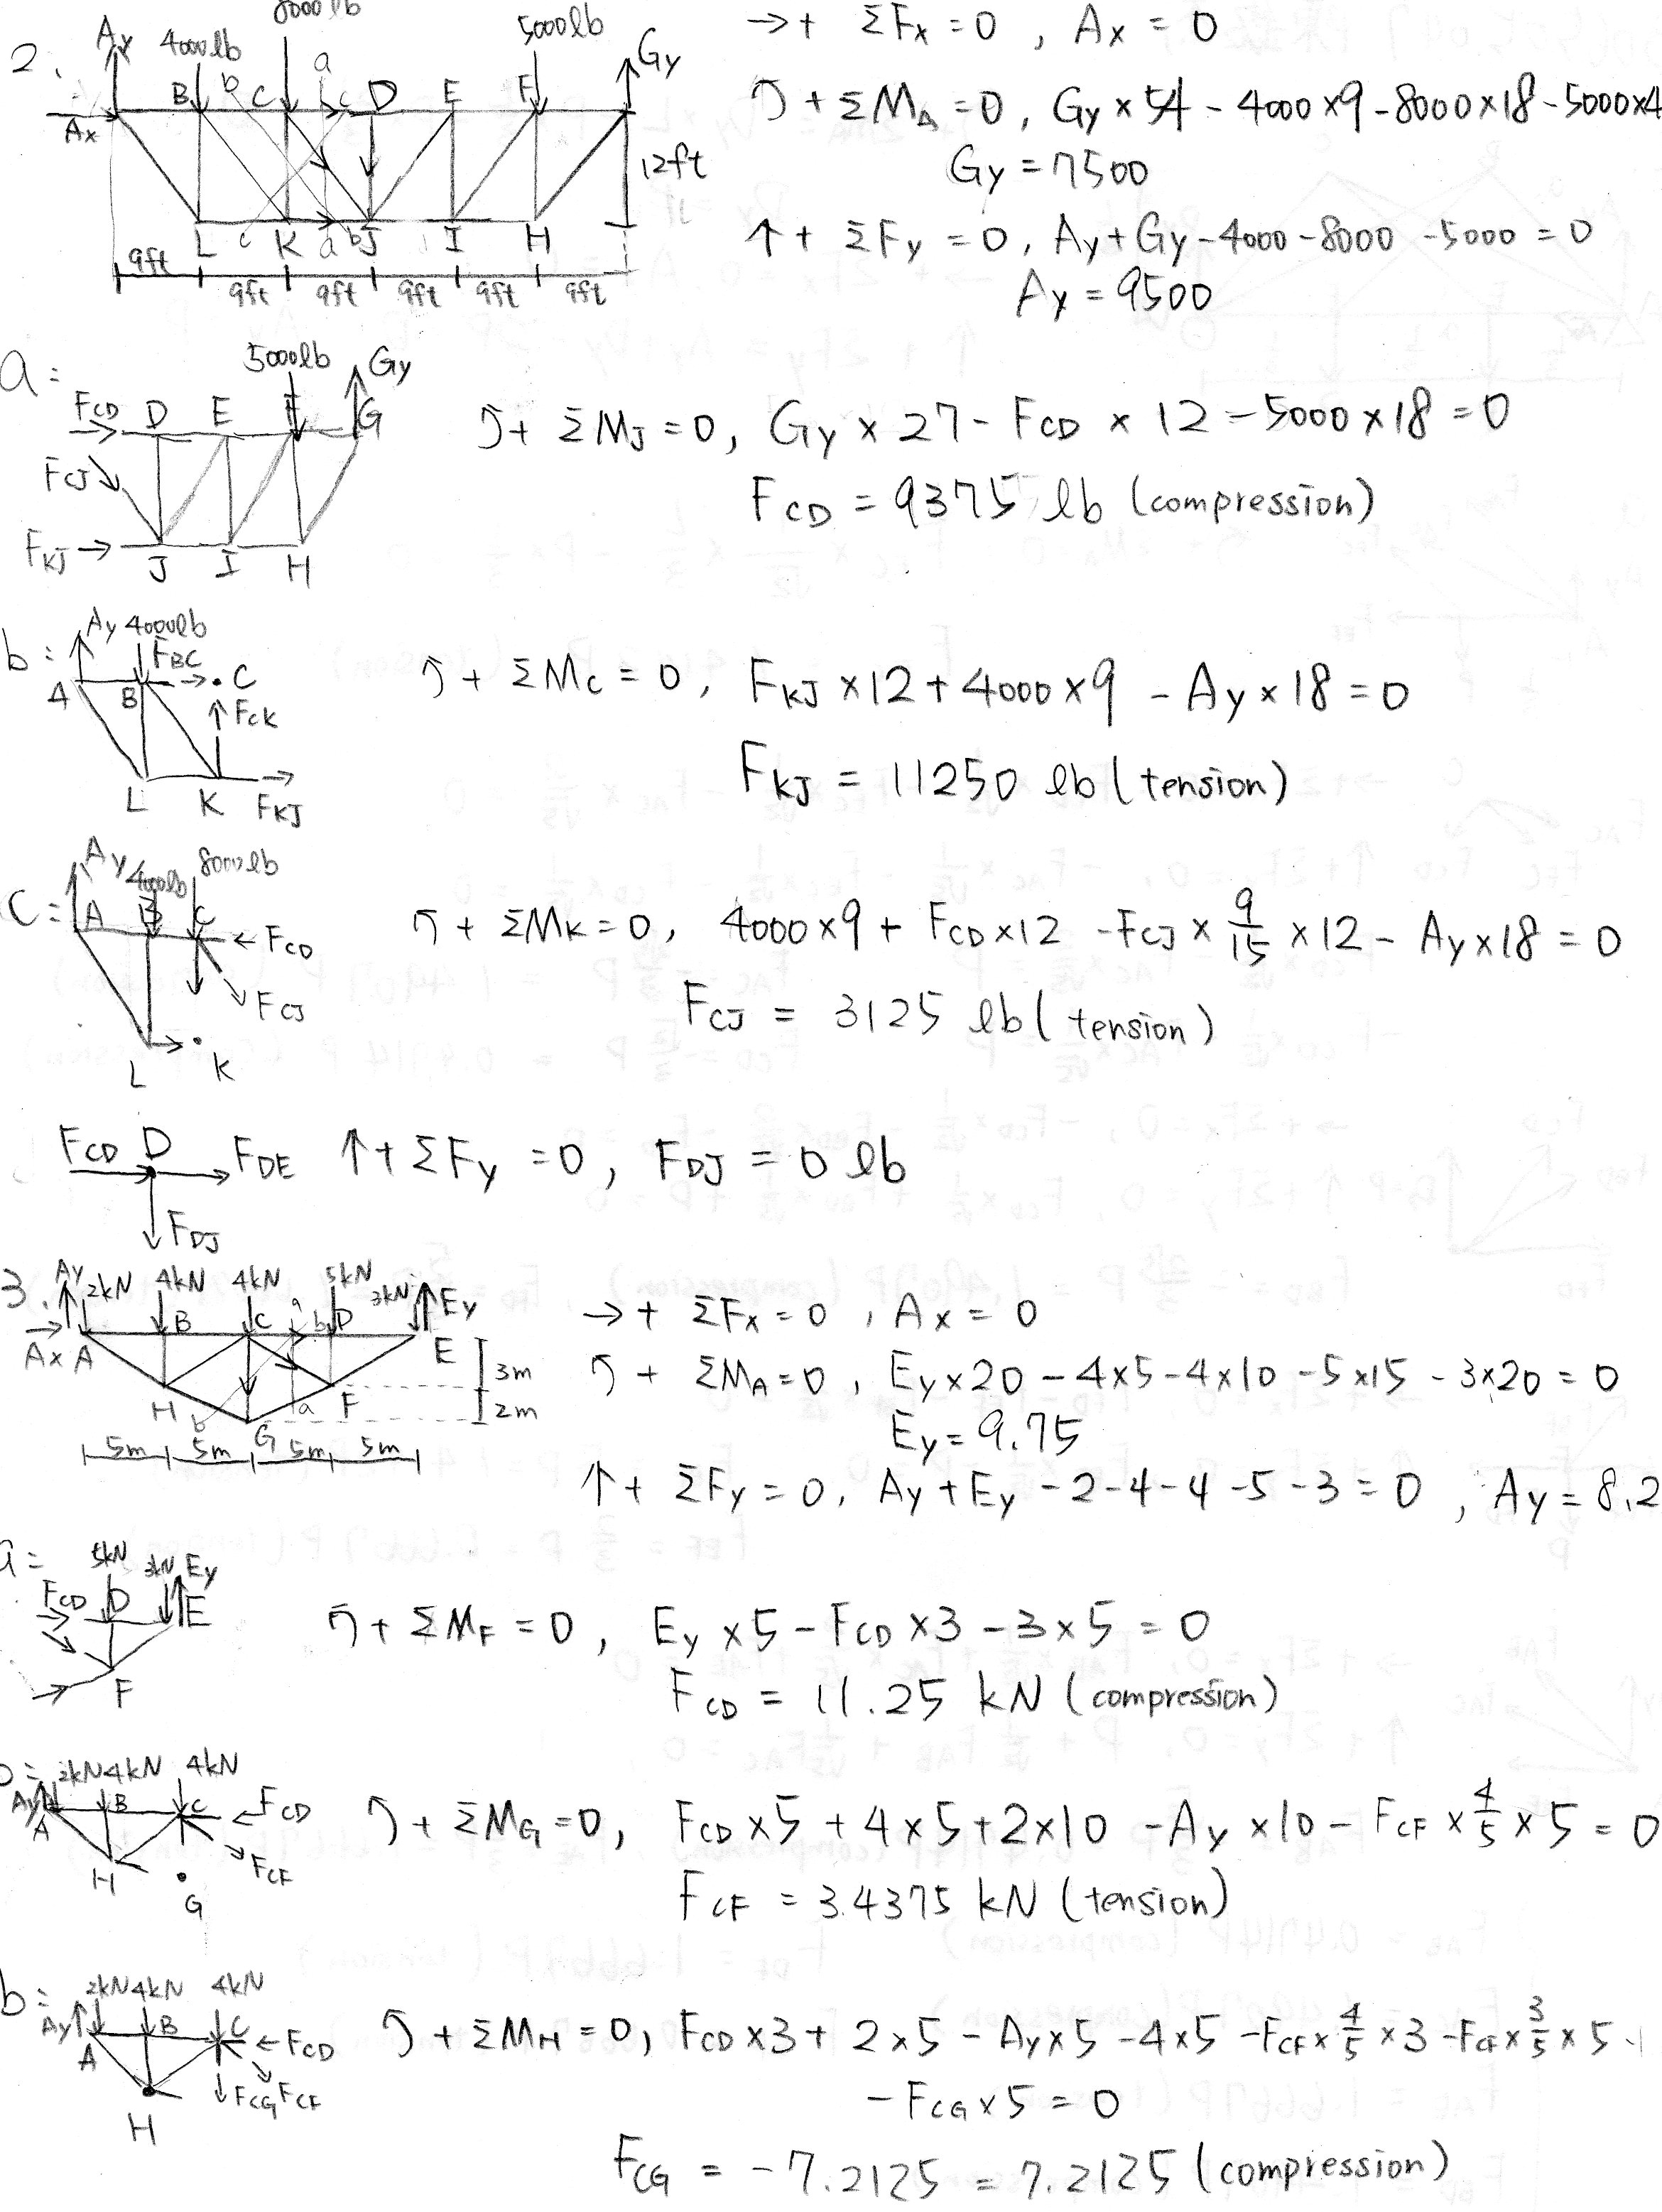 2.
8000 lb
Ay 4000 lb 5000 lb Gy
B b C a c D E F
Ax
12ft
L c K a b J I H
9ft 9ft 9ft 9ft 9ft 9ft
→+ ΣFx = 0 , Ax = 0
↶+ ΣM_A = 0, Gy × 54 - 4000 × 9 - 8000 × 18 - 5000 × 4
Gy = 7500
↑+ ΣFy = 0, Ay + Gy - 4000 - 8000 - 5000 = 0
Ay = 9500
a:
5000 lb Gy
F_CD D E F G
F_CJ
F_KJ J I H
↶+ ΣM_J = 0, Gy × 27 - F_CD × 12 - 5000 × 18 = 0
F_CD = 9375 lb (compression)
b:
Ay 4000 lb
F_BC
A B C
F_CK
L K F_KJ
↶+ ΣM_C = 0, F_KJ × 12 + 4000 × 9 - Ay × 18 = 0
F_KJ = 11250 lb (tension)
c:
Ay 4000 lb 8000 lb
A B C ← F_CD
F_CJ
L K
↶+ ΣM_K = 0, 4000 × 9 + F_CD × 12 - F_CJ × 9/15 × 12 - Ay × 18 = 0
F_CJ = 3125 lb (tension)
F_CD D F_DE
F_DJ
↑+ ΣFy = 0, F_DJ = 0 lb
3.
Ay 2kN 4kN 4kN 5kN 3kN Ey
B C a b D
Ax A E
3m
H b G a F
2m
5m 5m 5m 5m
→+ ΣFx = 0 , Ax = 0
↶+ ΣM_A = 0 , Ey × 20 - 4 × 5 - 4 × 10 - 5 × 15 - 3 × 20 = 0
Ey = 9.75
↑+ ΣFy = 0, Ay + Ey - 2 - 4 - 4 - 5 - 3 = 0 , Ay = 8.2
a:
5kN 3kN Ey
F_CD D E
F
↶+ ΣM_F = 0 , Ey × 5 - F_CD × 3 - 3 × 5 = 0
F_CD = 11.25 kN (compression)
b:
2kN 4kN 4kN
Ay A B C ← F_CD
F_CF
H G
↶+ ΣM_G = 0, F_CD × 5 + 4 × 5 + 2 × 10 - Ay × 10 - F_CF × 4/5 × 5 = 0
F_CF = 3.4375 kN (tension)
b:
2kN 4kN 4kN
Ay A B C ← F_CD
F_CG F_CF
H
↶+ ΣM_H = 0, F_CD × 3 + 2 × 5 - Ay × 5 - 4 × 5 - F_CF × 4/5 × 3 - F_CF × 3/5 × 5
- F_CG × 5 = 0
F_CG = -7.2125 = 7.2125 (compression)